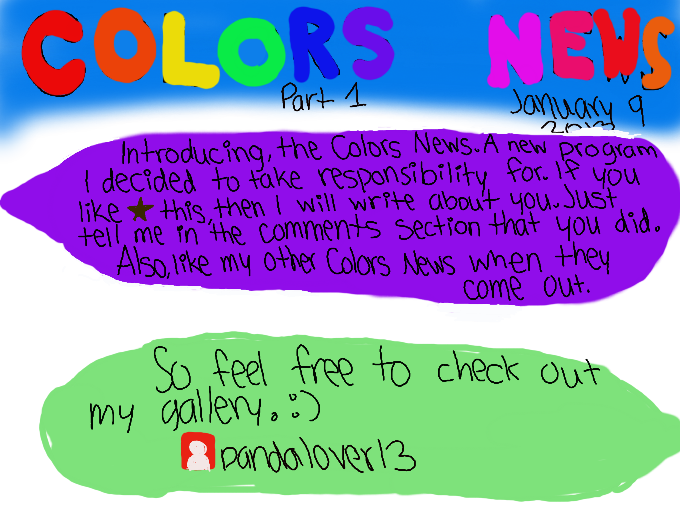 COLORS NEWS
Part 1
January 9
2013
Introducing, the Colors News. A new program
I decided to take responsibility for. If you
like ★ this, then I will write about you. Just
tell me in the comments section that you did.
Also, like my other Colors News when they
come out.
So feel free to check out
my gallery. :)
pandalover13